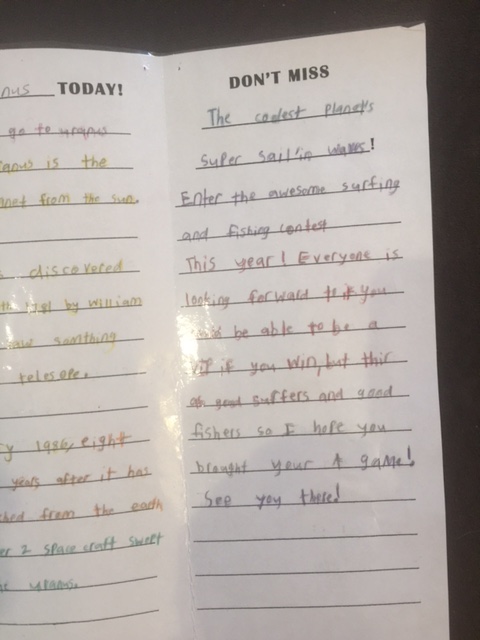 nus TODAY!
go to uranus
anus is the
anet from the sun.
discovered
by William
saw somthing
telescope.
y 1986, eight
years after it has
ched from the earth
er 2 space craft swept
uranus.
DON'T MISS
The coolest Planet's
super sail'in waves!
Enter the awesome surfing
and fishing contest
This year! Everyone is
looking forward to it you
be able to be a
VIP if you win, but thir
good surffers and good
fishers so I hope you
braught your A game!
See you there!